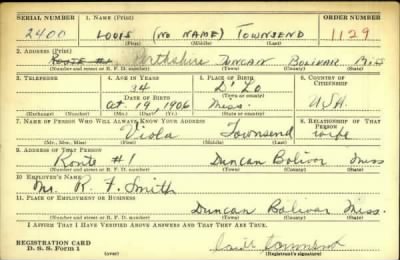 SERIAL NUMBER 1. NAME (Print) ORDER NUMBER
2400 LOUIS (NO NAME) TOWNSEND 1129
(First) (Middle) (Last)
2. ADDRESS (Print)
Route #1 Perthshire DUNCAN BOLIVAR
(Number and street or R. F. D. number) (Town) (County) (State)
3. TELEPHONE 4. AGE IN YEARS 5. PLACE OF BIRTH 6. COUNTRY OF CITIZENSHIP
34 D'Lo
DATE OF BIRTH (Town or county)
Oct 19, 1906 Miss. USA
(Exchange) (Number) (Mo.) (Day) (Yr.) (State or country)
7. NAME OF PERSON WHO WILL ALWAYS KNOW YOUR ADDRESS 8. RELATIONSHIP OF THAT PERSON
Viola Townsend wife
(Mr., Mrs., Miss) (First) (Middle) (Last)
9. ADDRESS OF THAT PERSON
Route #1 Duncan Bolivar Miss
(Number and street or R. F. D. number) (Town) (County) (State)
10. EMPLOYER'S NAME
Mr. R. F. Smith
11. PLACE OF EMPLOYMENT OR BUSINESS
Duncan Bolivar Miss.
(Number and street or R. F. D. number) (Town) (County) (State)
I AFFIRM THAT I HAVE VERIFIED ABOVE ANSWERS AND THAT THEY ARE TRUE.
REGISTRATION CARD
D. S. S. Form 1 (Registrant's signature)